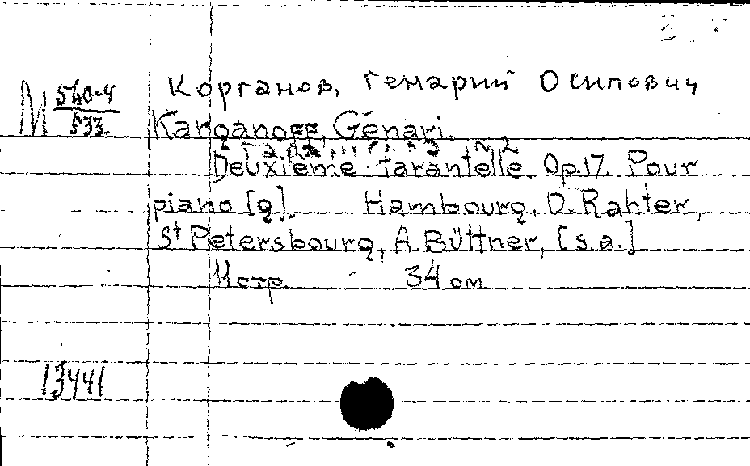 Корганов, Генарий Осипович
M 540-4
833
Karganoff, Génari.
Deuxième tarantelle. Op.17. Pour
piano [g]. Hambourg, D. Rahter,
St Petersbourg, A. Büttner, [s.a.]
11 стр. 34 см
13441